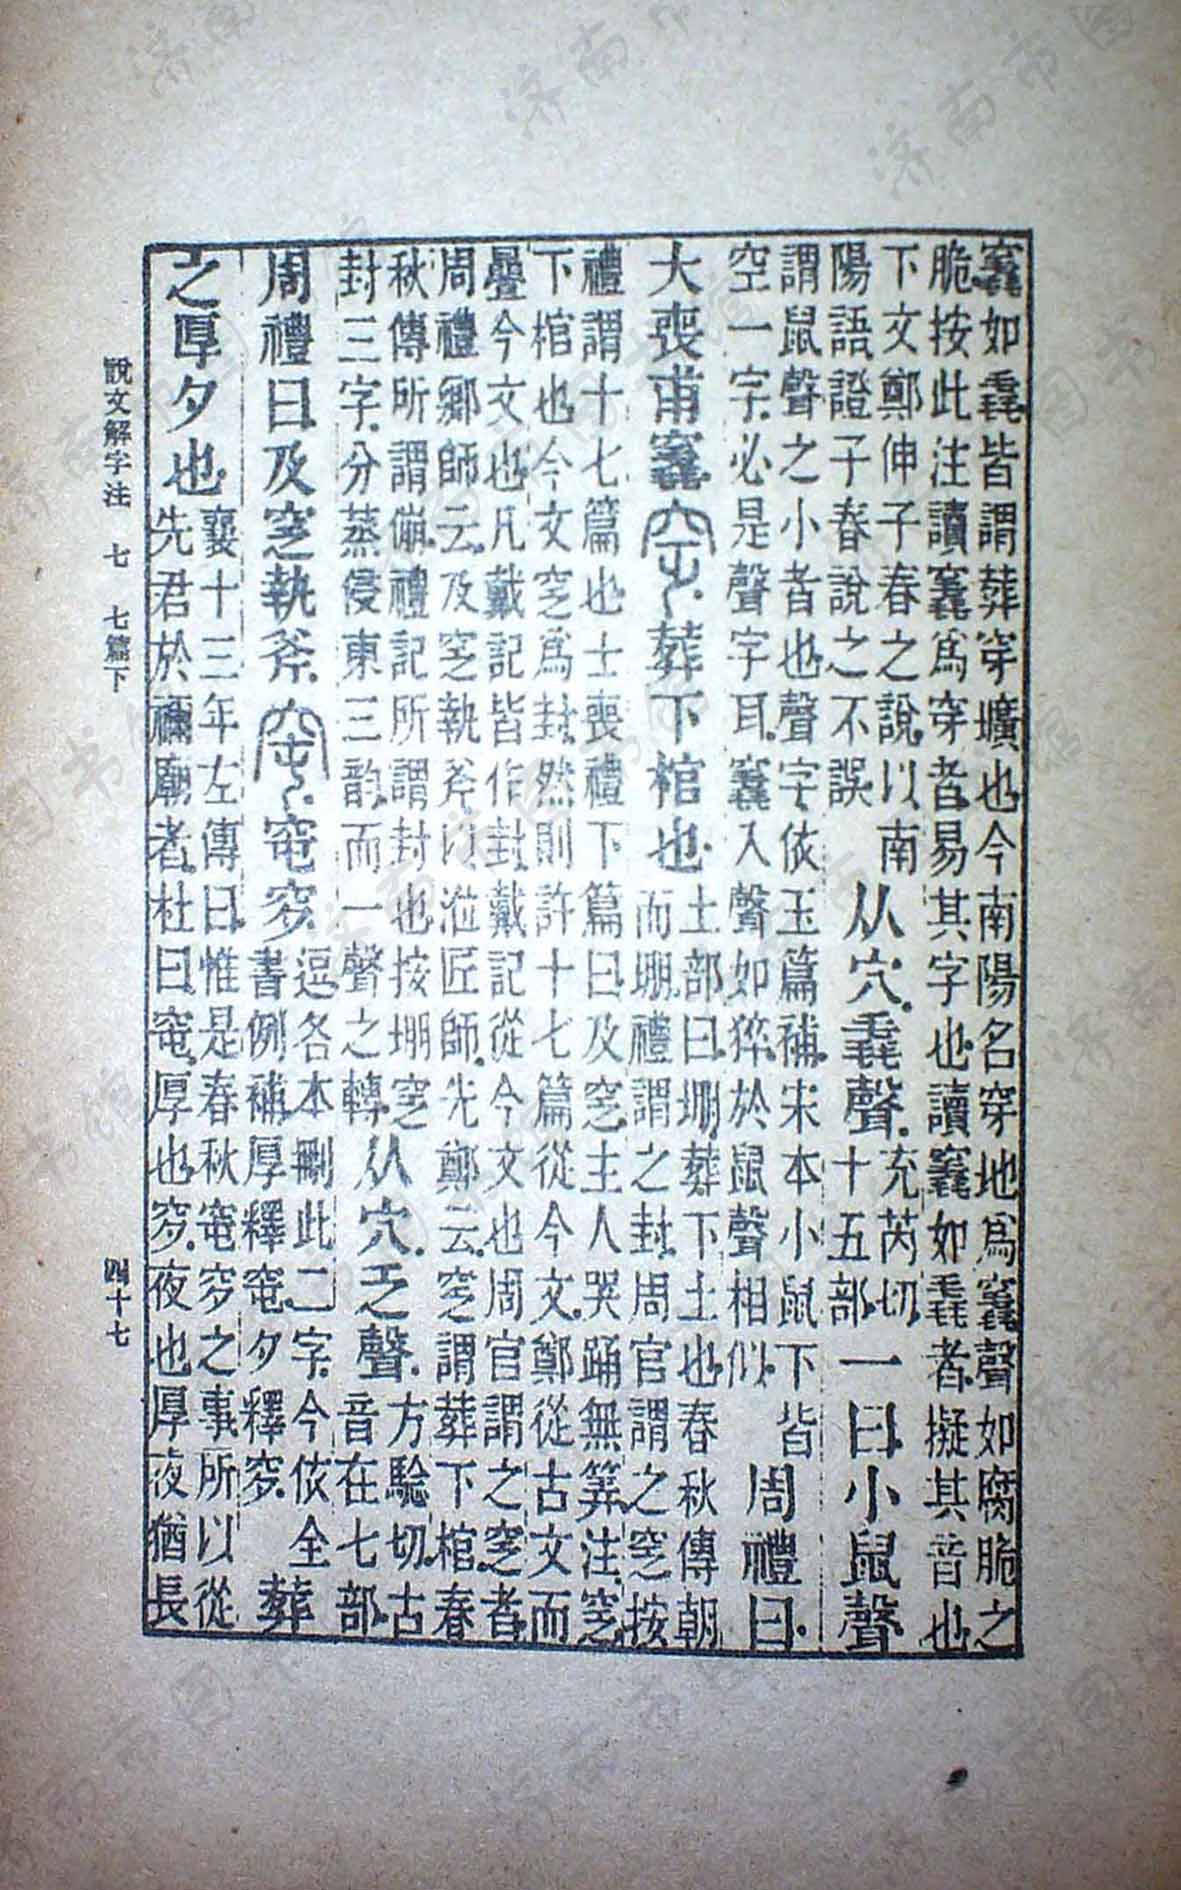 竁如毳皆謂葬穿壙也今南陽名穿地爲竁聲如腐脆之
脆按此注讀竁爲穿者易其字也讀竁如毳者擬其音也
下文鄭伸子春之說以南
陽語證子春說之不誤
从穴毳聲
充芮切
十五部
一曰小鼠聲
謂鼠聲之小者也聲字依玉篇補宋本小鼠下皆
空一字必是聲字耳竁入聲如猝於鼠聲相似
周禮曰
大喪甫竁窆葬下棺也
土部曰堋葬下土也春秋傳朝
而堋禮謂之封周官謂之窆按
禮謂十七篇也士喪禮下篇曰及窆主人哭踊無筭注窆
下棺也今文窆爲封然則許十七篇從今文鄭從古文而
疊今文也凡戴記皆作封戴記從今文也周官謂之窆者
周禮鄉師云及窆執斧以涖匠師先鄭云窆謂葬下棺春
秋傳所謂傰禮記所謂封也按堋窆
封三字分蒸侵東三韵而一聲之轉
从穴乏聲
方驗切古
音在七部
周禮曰及窆執斧窀窀穸
逗各本刪此二字今依全
書例補厚釋窀夕釋穸
葬
之厚夕也
襄十三年左傳曰惟是春秋窀穸之事所以從
先君於禰廟者杜曰窀厚也穸夜也厚夜猶長
說文解字注 七 七篇下 四十七